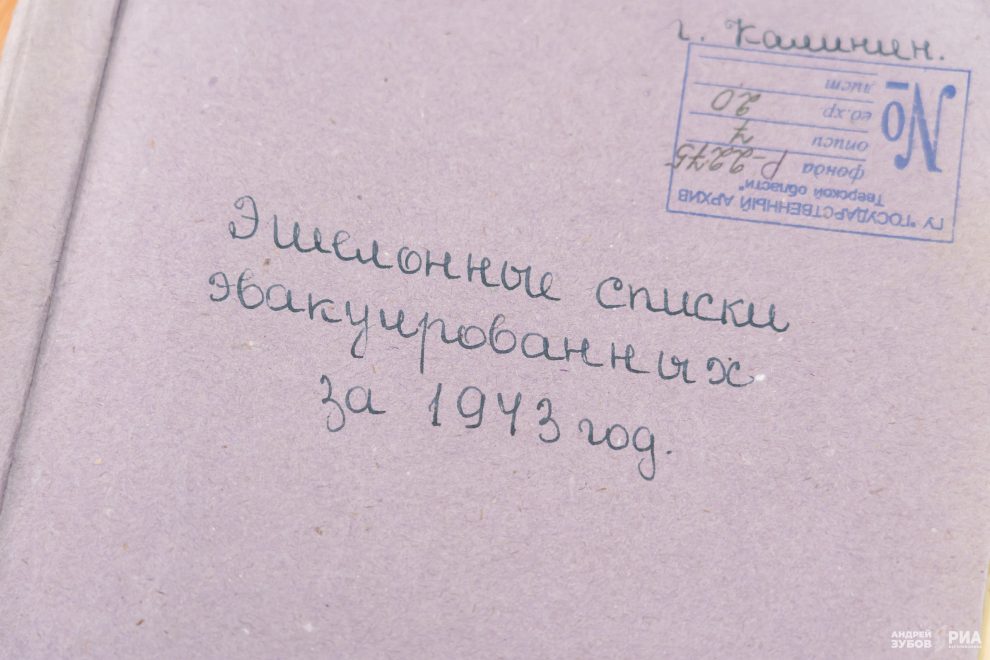 г. Калинин.
ГУ "ГОСУДАРСТВЕННЫЙ АРХИВ
Тверской области"
№
фонда Р-2275
описи 7
ед.хр 20
лист
Эшелонные списки
эвакуированных
за 1943 год.
АНДРЕЙ
ЗУБОВ
РИА